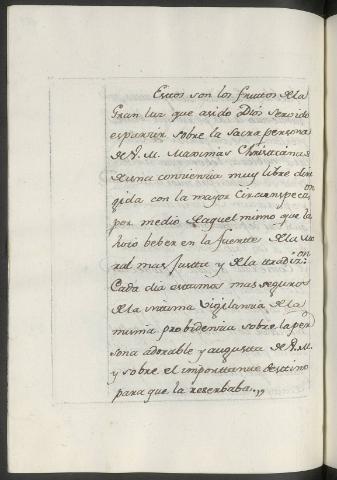 Estos son los fruttos de la
Gran luz que asido Dios servido
esparcir sobre la sacra persona
de V. M. Maximas Christianas
de una conciencia muy libre diri
gida con la mayor Circunspecc.on
por medio de aquel mismo que la
hizo beber en la fuente de la Mo
ral mas Justta y de la tradiz.on
Cada dia estamos mas seguros
de la intima Vigilancia de la
misma probidencia sobre la per
sona adorable y augusta de V. M.
y sobre el importtante destino
para que la reserbaba.,,